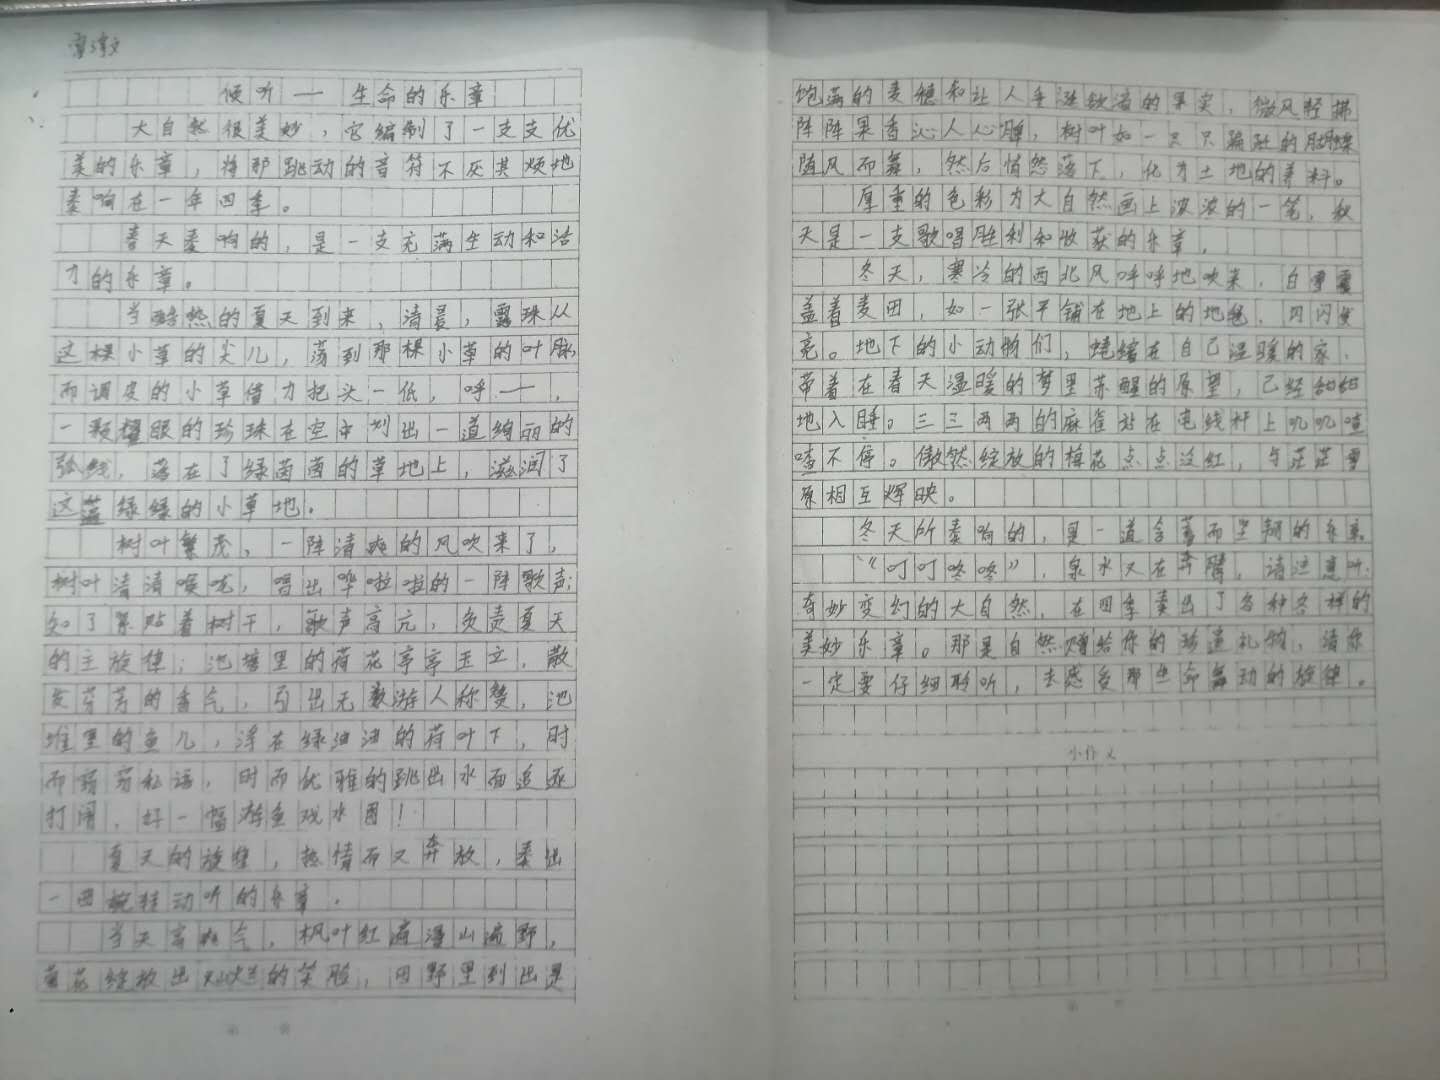 倾听——生命的乐章
大自然很美妙，它编制了一支支优
美的乐章，将那跳动的音符不厌其烦地
奏响在一年四季。
春天奏响的，是一支充满生动和活
力的乐章。
当酷热的夏天到来，清晨，露珠从
这棵小草的尖儿，荡到那棵小草的叶脉，
而调皮的小草借力把头一低，呼——，
一颗耀眼的珍珠在空中划出一道绚丽的
弧线，落在了绿茵茵的草地上，滋润了
这蓝绿绿的小草地。
树叶繁茂，一阵清爽的风吹来了，
树叶清清喉咙，唱出哗啦啦的一阵歌声；
知了紧贴着树干，歌声高亢，负责夏天
的主旋律；池塘里的荷花亭亭玉立，散
发芬芳的香气，引出无数游人称赞，池
塘里的鱼儿，浮在绿油油的荷叶下，时
而窃窃私语，时而优雅的跳出水面追逐
打闹，好一幅群鱼戏水图！
夏天的旋律，热情而又奔放，奏出
一曲婉转动听的乐章。
当天高秋气，枫叶红遍漫山遍野，
菊花绽放出灿烂的笑脸，田野里到出是
饱满的麦穗和让人垂涎欲滴的果实，微风轻拂
阵阵果香沁人心脾，树叶如一只只骗跹的蝴蝶
随风而舞，然后悄然落下，化为土地的养料。
厚重的色彩为大自然画上浓浓的一笔，秋
天是一支歌唱胜利和收获的乐章，
冬天，寒冷的西北风呼呼地吹来，白雪覆
盖着麦田，如一张平铺在地上的地毯，闪闪发
亮。地下的小动物们，蜷缩在自己温暖的家，
带着在春天温暖的梦里苏醒的愿望，已经甜甜
地入睡。三三两两的麻雀站在电线杆上叽叽喳
喳不停。傲然绽放的梅花点点泛红，与茫茫雪
原相互辉映。
冬天所奏响的，是一道含蓄而坚韧的乐章。
“叮叮咚咚”，泉水又在奔腾，请注意听：
奇妙变幻的大自然，在四季奏出了各种各样的
美妙乐章。那是自然赠给你的珍道礼物，请你
一定要仔细聆听，去感受那生命舞动的旋律。
小作文